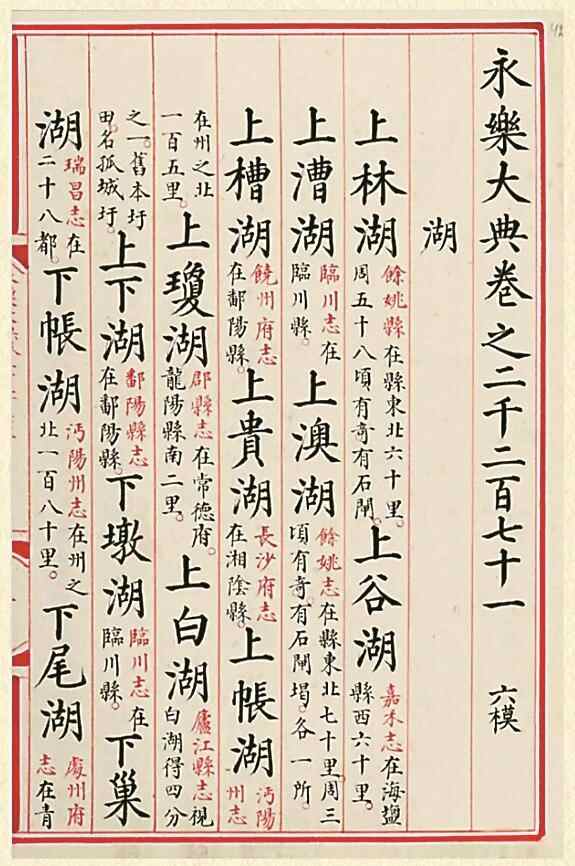 永樂大典卷之二千二百七十一 六模
湖
上林湖餘姚縣在縣東北六十里。周五十八頃有奇有石閘。上谷湖嘉禾志在海鹽縣西六十里。
上漕湖臨川志在臨川縣。上澳湖餘姚志在縣東北七十里周三頃有奇。有石閘堨。各一所。
上槽湖饒州府志在鄱陽縣。上貴湖長沙府志在湘陰縣。上帳湖沔陽州志
在州之北一百五里。上瓊湖郡縣志在常德府。龍陽縣南二里。上白湖廬江縣志視白湖得四分
之一。舊本圩田。名孤城圩。上下湖鄱陽縣志在鄱陽縣。下墩湖臨川志在臨川縣。下巢
湖瑞昌志在二十八都。下帳湖沔陽州志在州之北一百八十里。下尾湖處州府志在青